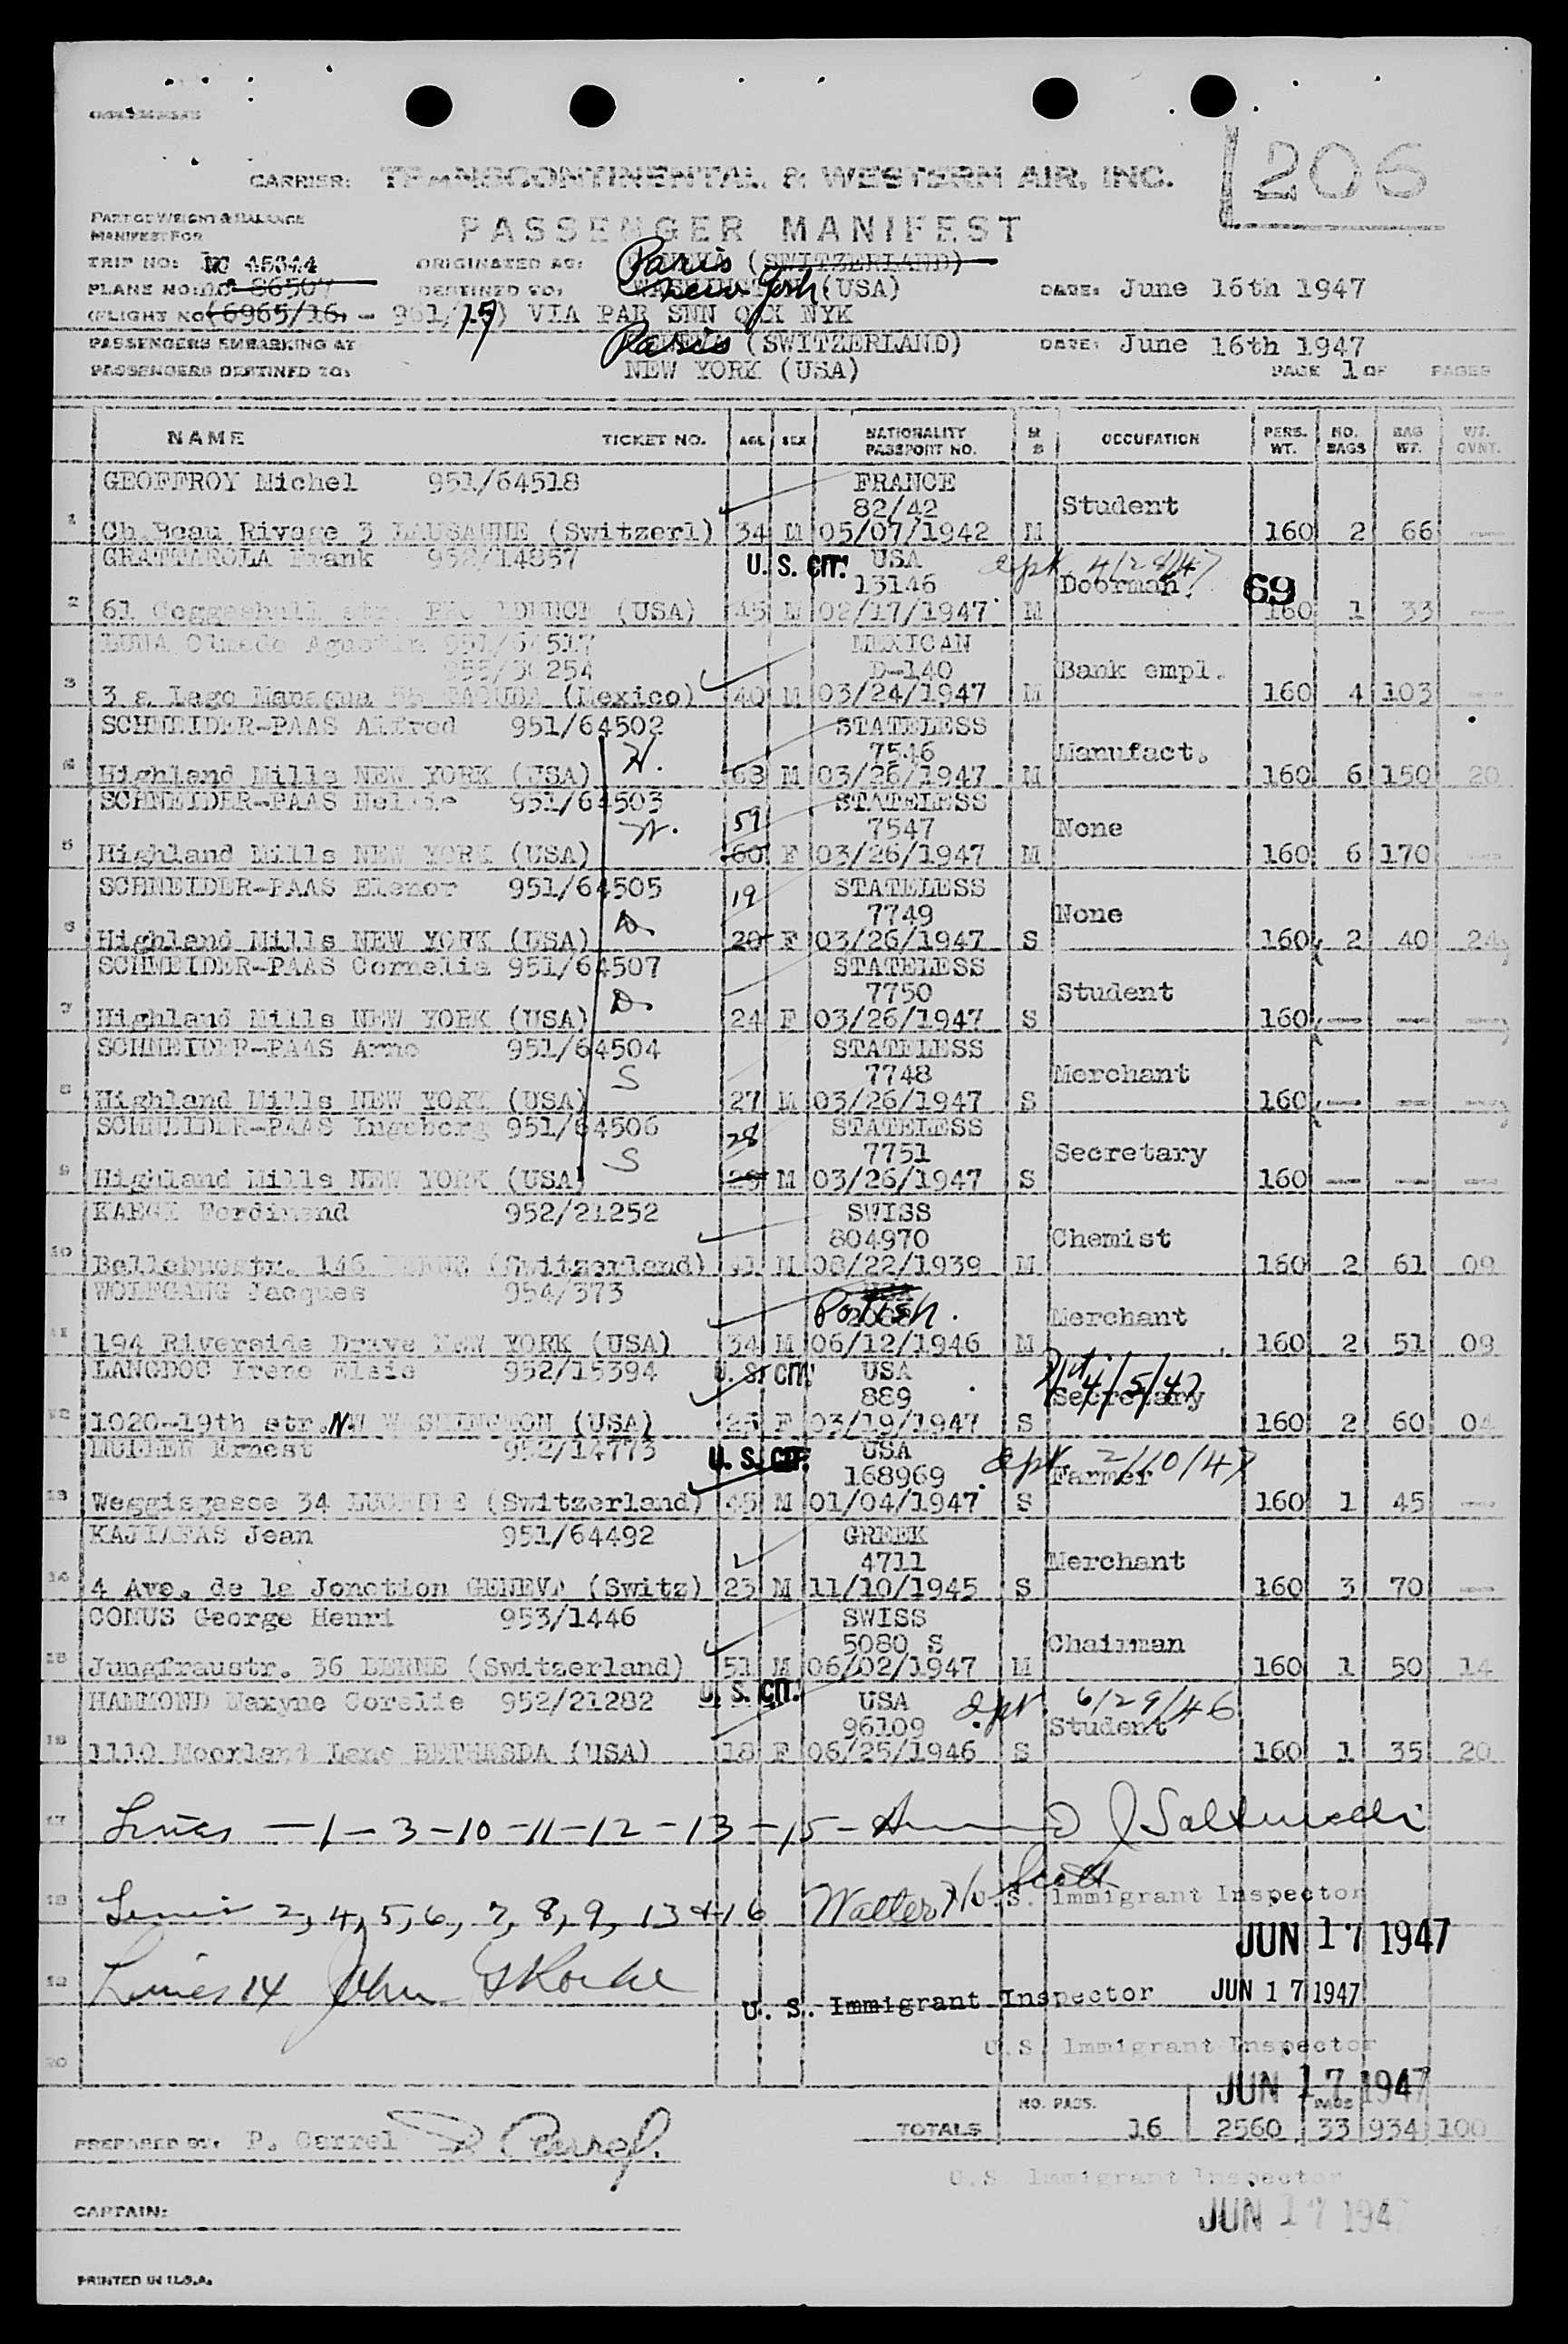 CARRIER: TRANSCONTINENTAL & WESTERN AIR, INC. 206
PART OF WEIGHT & BALANCE
MANIFEST FOR
PASSENGER MANIFEST
TRIP NO: 45344 ORIGINATED AS: Paris (SWITZERLAND)
PLANE NO: 86507 DESTINED TO: New York (USA) DATE: June 16th 1947
(FLIGHT NO (6965/16) - 951/15) VIA PAR SNN QX NYK
PASSENGERS EMBARKING AT Paris (SWITZERLAND) DATE: June 16th 1947
PASSENGERS DESTINED TO: NEW YORK (USA) PAGE 1 OF PAGES
NAME TICKET NO. AGE SEX NATIONALITY PASSPORT NO. M S OCCUPATION PERS. WT. NO. BAGS BAG WT. WT. OVNT.
GEOFFROY Michel 951/64518 FRANCE
82/42 Student
1 Ch.Beau Rivage 3 LAUSANNE (Switzerl) 34 M 05/07/1942 M 160 2 66 —
GRATTAROLA Frank 952/14857 U. S. CIT. USA apt 4/28/47
13146 Doorman 69
2 61 Coggeshall str. PROVIDENCE (USA) 45 M 02/17/1947 M 160 1 33 —
LUNA Olmedo Agustin 951/64517 MEXICAN
D-140 Bank empl.
3 3 a Lago Managua (Mexico) 40 M 03/24/1947 M 160 4 103 —
SCHNEIDER-PAAS Alfred 951/64502 STATELESS
H. 7546 Manufact.
4 Highland Mills NEW YORK (USA) 63 M 03/26/1947 M 160 6 150 20
SCHNEIDER-PAAS Nellie 951/64503 STATELESS
W. 59 7547 None
5 Highland Mills NEW YORK (USA) 60 F 03/26/1947 M 160 6 170 —
SCHNEIDER-PAAS Elenor 951/64505 STATELESS
D 19 7749 None
6 Highland Mills NEW YORK (USA) 20 F 03/26/1947 S 160 2 40 24
SCHNEIDER-PAAS Cornelia 951/64507 STATELESS
D 7750 Student
7 Highland Mills NEW YORK (USA) 24 F 03/26/1947 S 160 — — —
SCHNEIDER-PAAS Arno 951/64504 STATELESS
S 7748 Merchant
8 Highland Mills NEW YORK (USA) 27 M 03/26/1947 S 160 — — —
SCHNEIDER-PAAS Ingeborg 951/64506 STATELESS
S 28 7751 Secretary
9 Highland Mills NEW YORK (USA) 29 M 03/26/1947 S 160 — — —
KAEGI Ferdinand 952/21252 SWISS
804970 Chemist
10 146 BERNE (Switzerland) 41 M 08/22/1939 M 160 2 61 09
WOLFGANG Jacques 954/373 USA
Polish. Merchant
11 194 Riverside Drive NEW YORK (USA) 34 M 06/12/1946 M 160 2 51 09
LANGDOC Irene Elsie 952/15394 U. S. CIT. USA
889 4/5/47 Secretary
12 1020-19th str.NW WASHINGTON (USA) 26 F 03/19/1947 S 160 2 60 04
Ernest 952/14773 U. S. CIT. USA apt 2/10/47
168969 Farmer
13 Weggisgasse 34 LUCERNE (Switzerland) 45 M 01/04/1947 S 160 1 45 —
KAJIAFAS Jean 951/64492 GREEK
4711 Merchant
14 4 Ave. de la Jonction GENEVA (Switz) 23 M 11/10/1945 S 160 3 70 —
COMUS George Henri 953/1446 SWISS
5080 S Chairman
15 Jungfraustr. 36 BERNE (Switzerland) 51 M 06/02/1947 M 160 1 50 14
HAMMOND Maxyne Corelie 952/21282 U. S. CIT. USA apt 6/29/46
96109 Student
16 1110 Moorland Lane BETHESDA (USA) 18 F 06/25/1946 S 160 1 35 20
17 Lines —1—3—10—11—12—13—15—
18 Lines 2, 4, 5, 6, 7, 8, 9, 13 & 16 Walter Scott U.S. Immigrant Inspector
JUN 17 1947
19 Lines 14 John
U. S. Immigrant Inspector JUN 17 1947
U.S. Immigrant Inspector
20
JUN 17 1947
TOTALS NO. PASS. 16 2560 BAGS 33 934 100
PREPARED BY: P. Carrel P Carrel.
U.S. Immigrant Inspector
CAPTAIN: JUN 17 1947
PRINTED IN U.S.A.